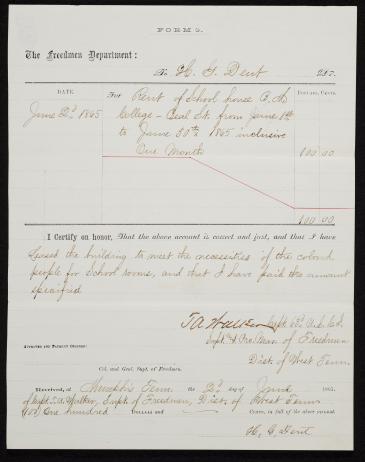 FORM 2.
The Freedmen Department:
To H. G. Dent Dr.
DATE.
For
DOLLARS. CENTS.
June 2d 1865
Rent of School house
College - Beal St. from June 1st
to June 30th 1865 inclusive
One Month
100 00
100 00
I Certify on honor, That the above account is correct and just, and that I have
leased the building to meet the necessities of the colored
people for School rooms, and that I have paid the amount
specified
T A Walker Capt.
Supt. & Pro. Mar. of Freedmen
Dist. of West Tenn.
APPROVED AND PAYMENT ORDERED:
Col. and Genl. Supt. of Freedmen.
Received, at Memphis Tenn. the 2d day of June 1865,
of Capt. T. A. Walker, Supt. of Freedmen, Dist. of West Tenn
(100) One hundred DOLLARS and CENTS, in full of the above account
H. G. Dent